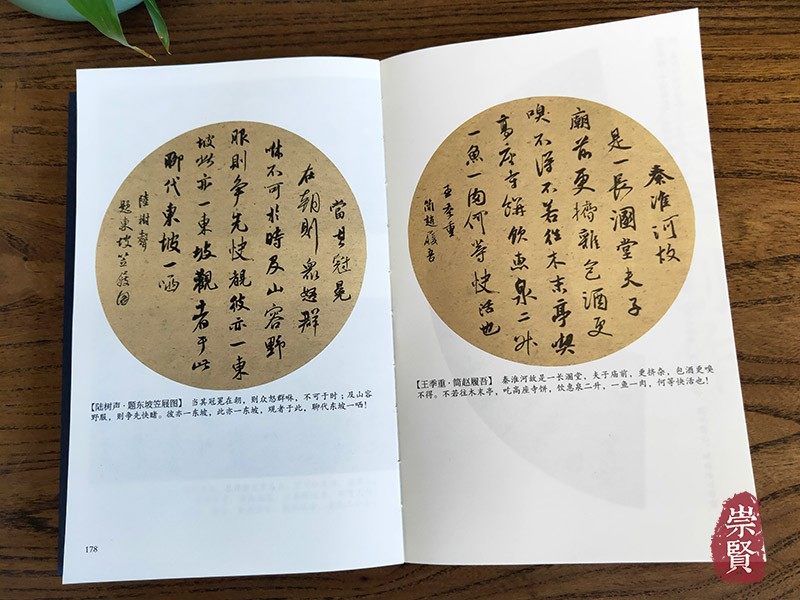 當其冠冕
在朝則衆怒群
咻不可於時及山容野
服則争先快覩彼亦一東
坡此亦一東坡觀者于此
聊代東坡一哂
陸樹聲
題東坡笠屐圖
【陆树声·题东坡笠屐图】 当其冠冕在朝,则众怒群咻,不可于时;及山容
野服,则争先快睹。彼亦一东坡,此亦一东坡,观者于此,聊代东坡一哂!
178
秦淮河故
是一長溷堂夫子
廟前更擠雜包酒更
嗅不得不若往木末亭喫
高座寺餅飲惠泉二升
一魚一肉何等快活也
王季重
簡趙履吾
【王季重·简赵履吾】 秦淮河故是一长溷堂,夫子庙前,更挤杂,包酒更嗅
不得。不若往木末亭,吃高座寺饼,饮惠泉二升,一鱼一肉,何等快活也!
崇賢